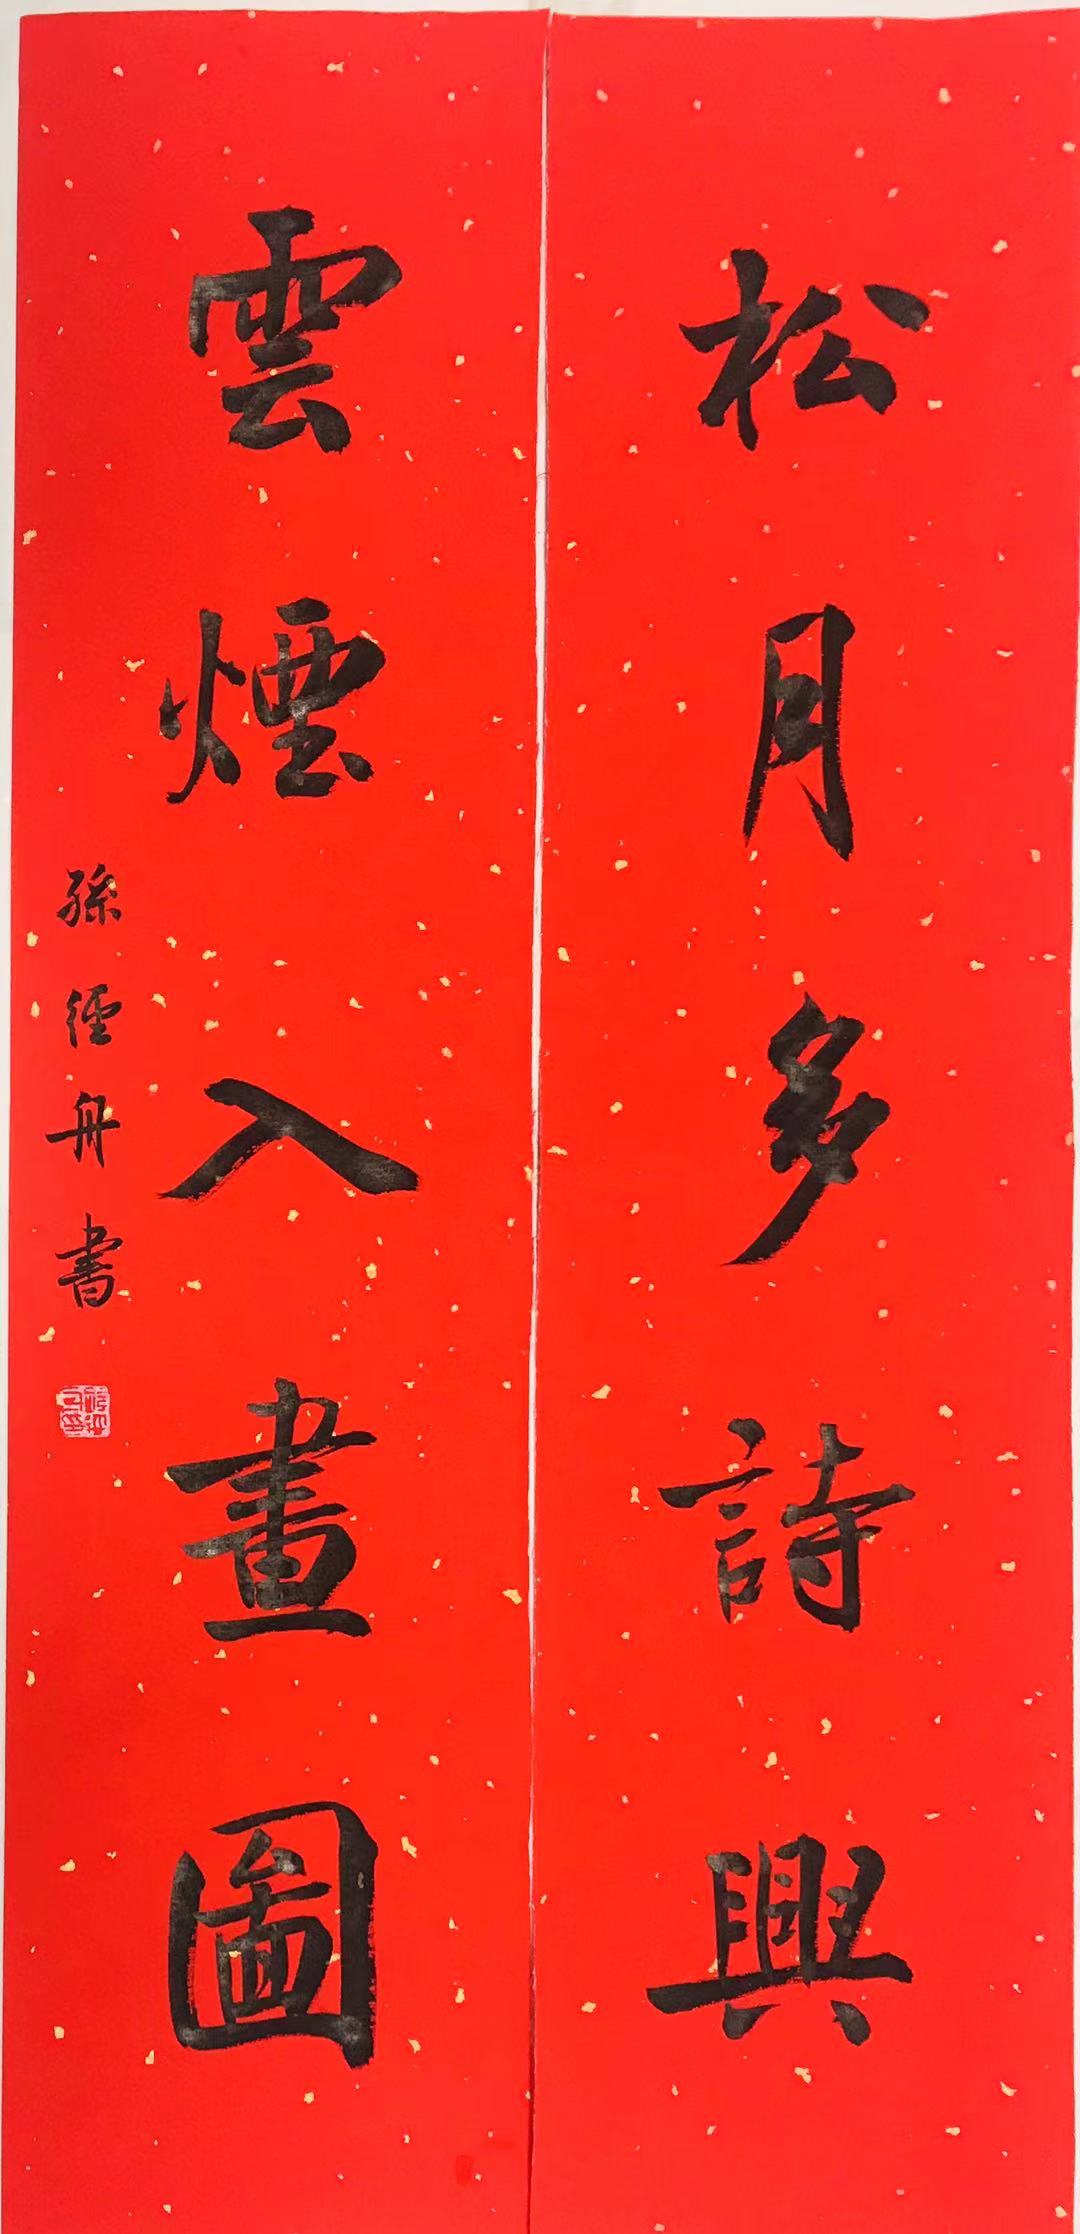 松月多詩興
雲煙入畫圖
孫徑舟書